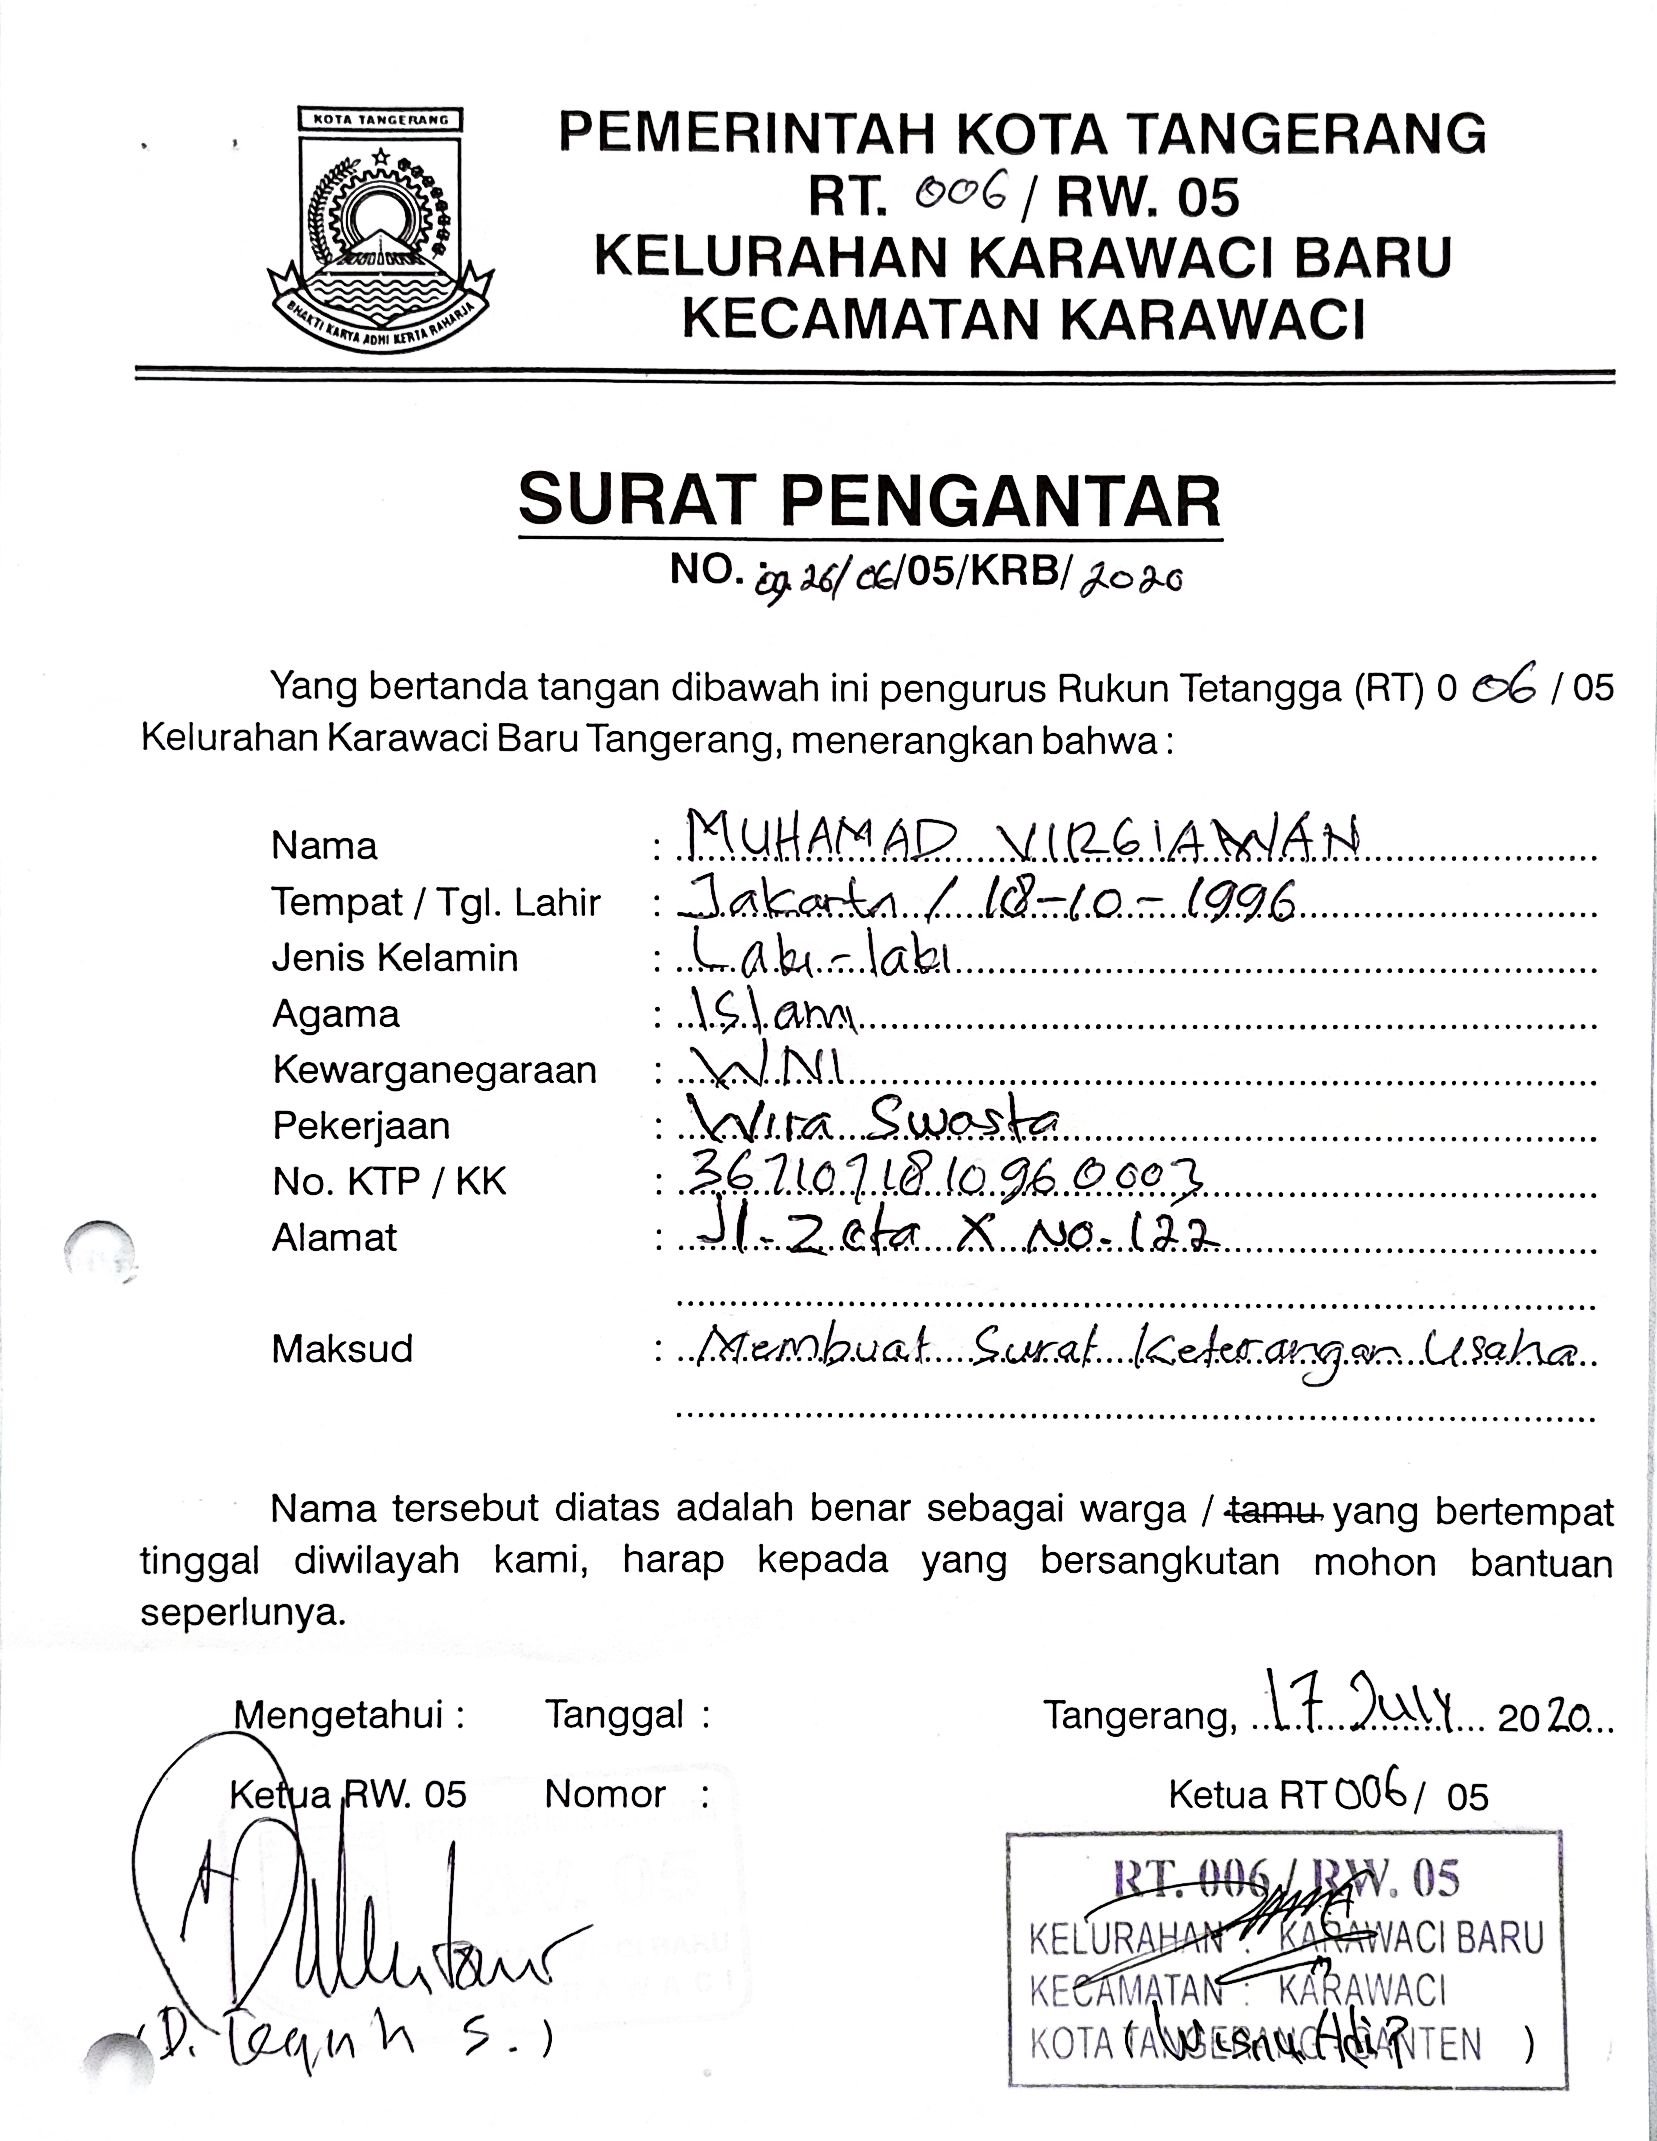 KOTA TANGERANG
BHAKTI KARYA ADHI KERTA RAHARJA
PEMERINTAH KOTA TANGERANG
RT. 006 / RW. 05
KELURAHAN KARAWACI BARU
KECAMATAN KARAWACI
SURAT PENGANTAR
NO. 26/06/05/KRB/2020
Yang bertanda tangan dibawah ini pengurus Rukun Tetangga (RT) 0 06 / 05
Kelurahan Karawaci Baru Tangerang, menerangkan bahwa :
Nama : MUHAMAD VIRGIAWAN
Tempat / Tgl. Lahir : Jakarta / 18-10-1996
Jenis Kelamin : Laki-laki
Agama : Islam
Kewarganegaraan : WNI
Pekerjaan : Wira Swasta
No. KTP / KK : 3671071810960003
Alamat : Jl. Zeta X No. 122
Maksud : Membuat Surat Keterangan Usaha
Nama tersebut diatas adalah benar sebagai warga / tamu yang bertempat
tinggal diwilayah kami, harap kepada yang bersangkutan mohon bantuan
seperlunya.
Mengetahui : Tanggal : Tangerang, 17 July 2020
Ketua RW. 05 Nomor : Ketua RT 006 / 05
RT. 006 / RW. 05
KELURAHAN : KARAWACI BARU
KECAMATAN : KARAWACI
KOTA TANGERANG-BANTEN
(D. Teguh S.) (Wisnu Adi P)